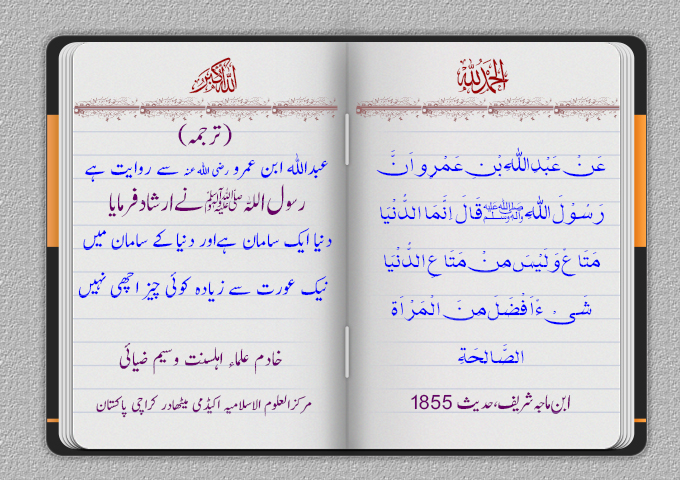 الحمد لله
عَنْ عَبْدِاللّٰهِ بْنِ عَمْرٍو اَنَّ
رَسُوْلَ اللّٰهِ ﷺ قَالَ اِنَّمَا الدُّنْيَا
مَتَاعٌ وَلَيْسَ مِنْ مَتَاعِ الدُّنْيَا
شَىْءٌ اَفْضَلَ مِنَ الْمَرْاَةِ
الصَّالِحَةِ
ابن ماجہ شریف، حدیث 1855
الله اكبر
(ترجمہ)
عبداللہ ابن عمرو رضی اللہ عنہ سے روایت ہے
رسول اللہ ﷺ نے ارشاد فرمایا
دنیا ایک سامان ہے اور دنیا کے سامان میں
نیک عورت سے زیادہ کوئی چیز اچھی نہیں
خادم علماء اہلسنت وسیم ضیائی
مرکز العلوم الاسلامیہ اکیڈمی میٹھادر کراچی پاکستان